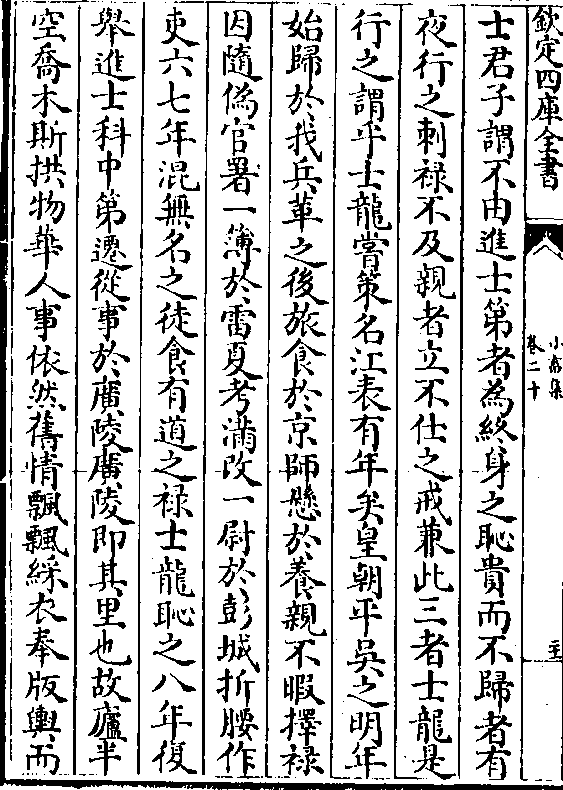 欽定四庫全書
小畜集
卷二十
士君子謂不由進士第者為終身之恥貴而不歸者有
夜行之刺祿不及親者立不仕之戒兼此三者士龍是
行之謂乎士龍嘗策名江表有年矣皇朝平吳之明年
始歸於我兵革之後旅食於京師懸於養親不暇擇祿
因隨偽官署一簿於雷夏考滿改一尉於彭城折腰作
吏六七年混無名之徒食有道之祿士龍恥之八年復
舉進士科中第遷從事於廣陵廣陵即其里也故廬半
空喬木斯拱物華人事依然舊情飄飄綵衣奉版輿而